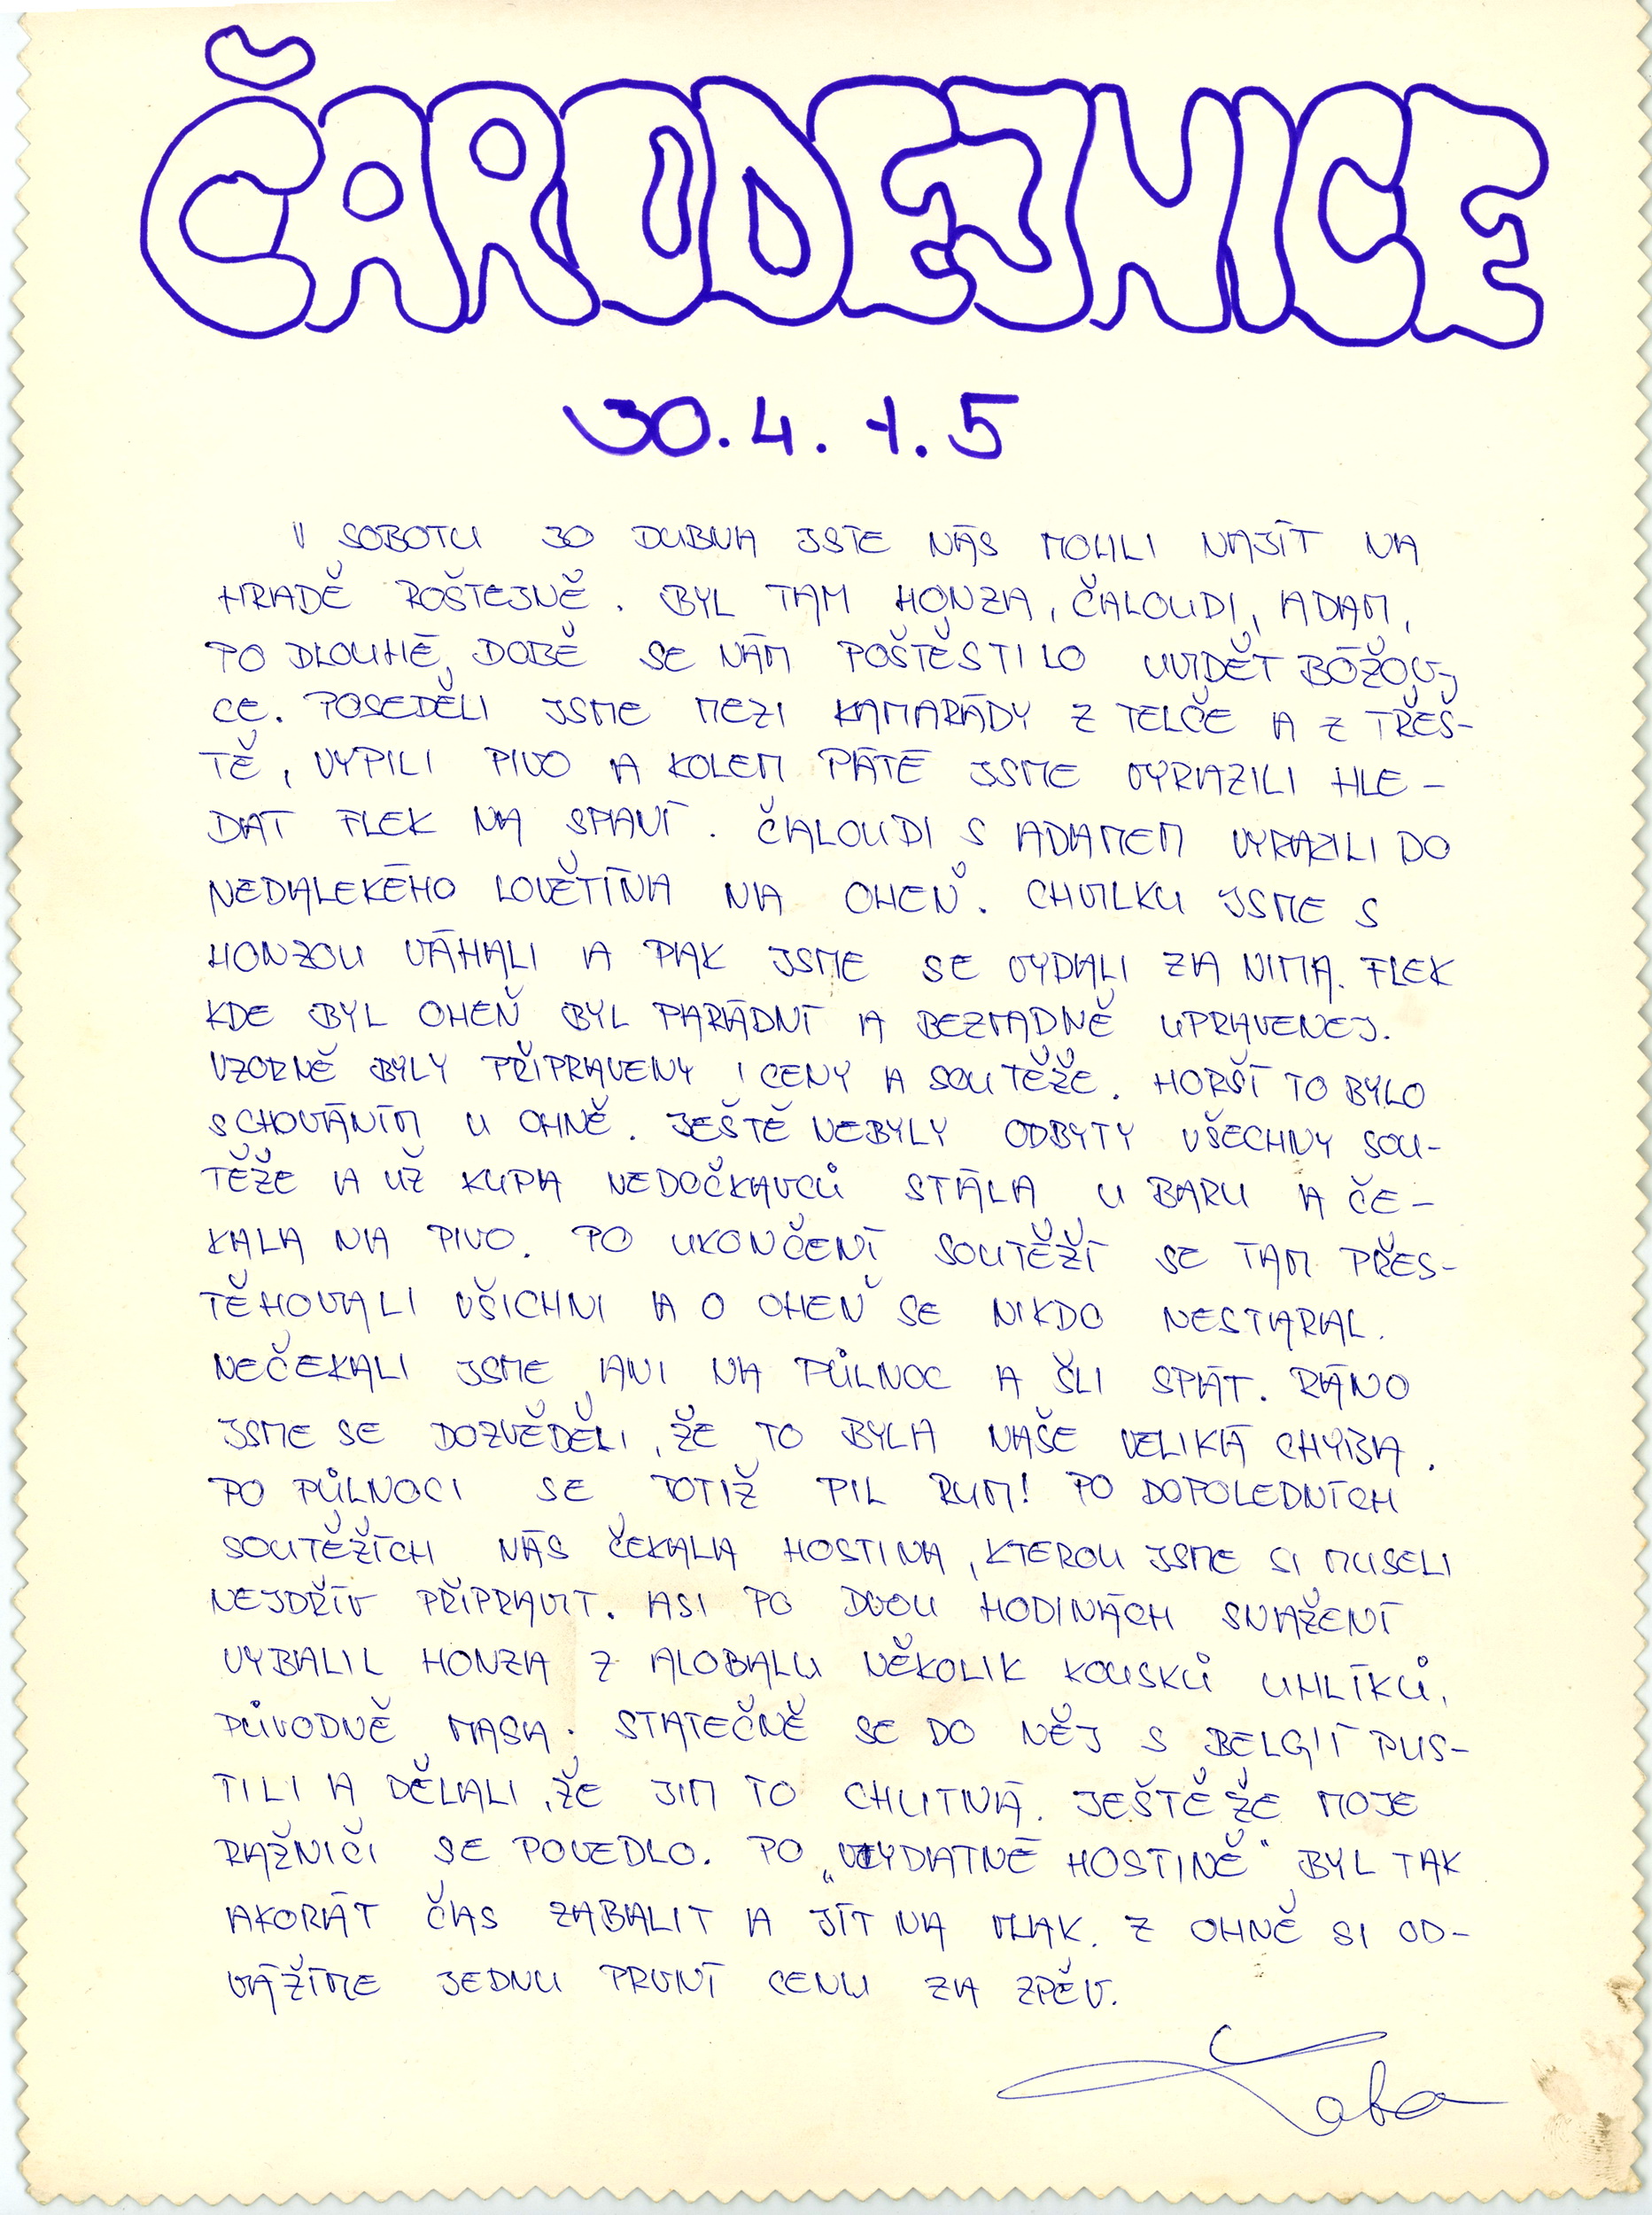 ČARODEJNICE
30.4. 1.5
V SOBOTU 30 DUBNA JSTE NÁS MOHLI NAJÍT NA
HRADĚ ROŠTEJNĚ. BYL TAM HONZA, ČALOUDI, ADAM,
PO DLOUHÉ DOBĚ SE NÁM POŠTĚSTILO UVIDĚT BÓŽOV-
CE. POSEDĚLI JSME MEZI KAMARÁDY Z TELČE A Z TŘEŠ-
TĚ, VYPILI PIVO A KOLEM PÁTÉ JSME VYRAZILI HLE-
DAT FLEK NA SPANÍ. ČALOUDI S ADAMEM VYRAZILI DO
NEDALEKÉHO LOVĚTÍNA NA OHEŇ. CHVILKU JSME S
HONZOU VÁHALI A PAK JSME SE VYDALI ZA NIMA. FLEK
KDE BYL OHEŇ BYL PARÁDNÍ A BEZVADNĚ UPRAVENEJ.
VZORNĚ BYLY PŘIPRAVENY I CENY A SOUTĚŽE. HORŠÍ TO BYLO
S CHOVÁNÍM U OHNĚ. JEŠTĚ NEBYLY ODBYTY VŠECHNY SOU-
TĚŽE A UŽ KUPA NEDOČKAVCŮ STÁLA U BARU A ČE-
KALA NA PIVO. PO UKONČENÍ SOUTĚŽÍ SE TAM PŘES-
TĚHOVALI VŠICHNI A O OHEŇ SE NIKDO NESTARAL.
NEČEKALI JSME ANI NA PŮLNOC A ŠLI SPÁT. RÁNO
JSME SE DOZVĚDĚLI, ŽE TO BYLA NAŠE VELIKÁ CHYBA.
PO PŮLNOCI SE TOTIŽ PIL RUM! PO DOPOLEDNÍCH
SOUTĚŽÍCH NÁS ČEKALA HOSTINA, KTEROU JSME SI MUSELI
NEJDŘÍV PŘIPRAVIT. ASI PO DVOU HODINÁCH SNAŽENÍ
VYBALIL HONZA Z ALOBALU NĚKOLIK KOUSKŮ UHLÍKŮ,
PŮVODNĚ MASA. STATEČNĚ SE DO NĚJ S BELGIÍ PUS-
TILI A DĚLALI, ŽE JIM TO CHUTNÁ. JEŠTĚ ŽE MOJE
RAŽNIČÍ SE POVEDLO. PO „VYDATNÉ HOSTINĚ" BYL TAK
AKORÁT ČAS ZABALIT A JÍT NA VLAK. Z OHNĚ SI OD-
VÁŽÍME JEDNU PRVNÍ CENU ZA ZPĚV.